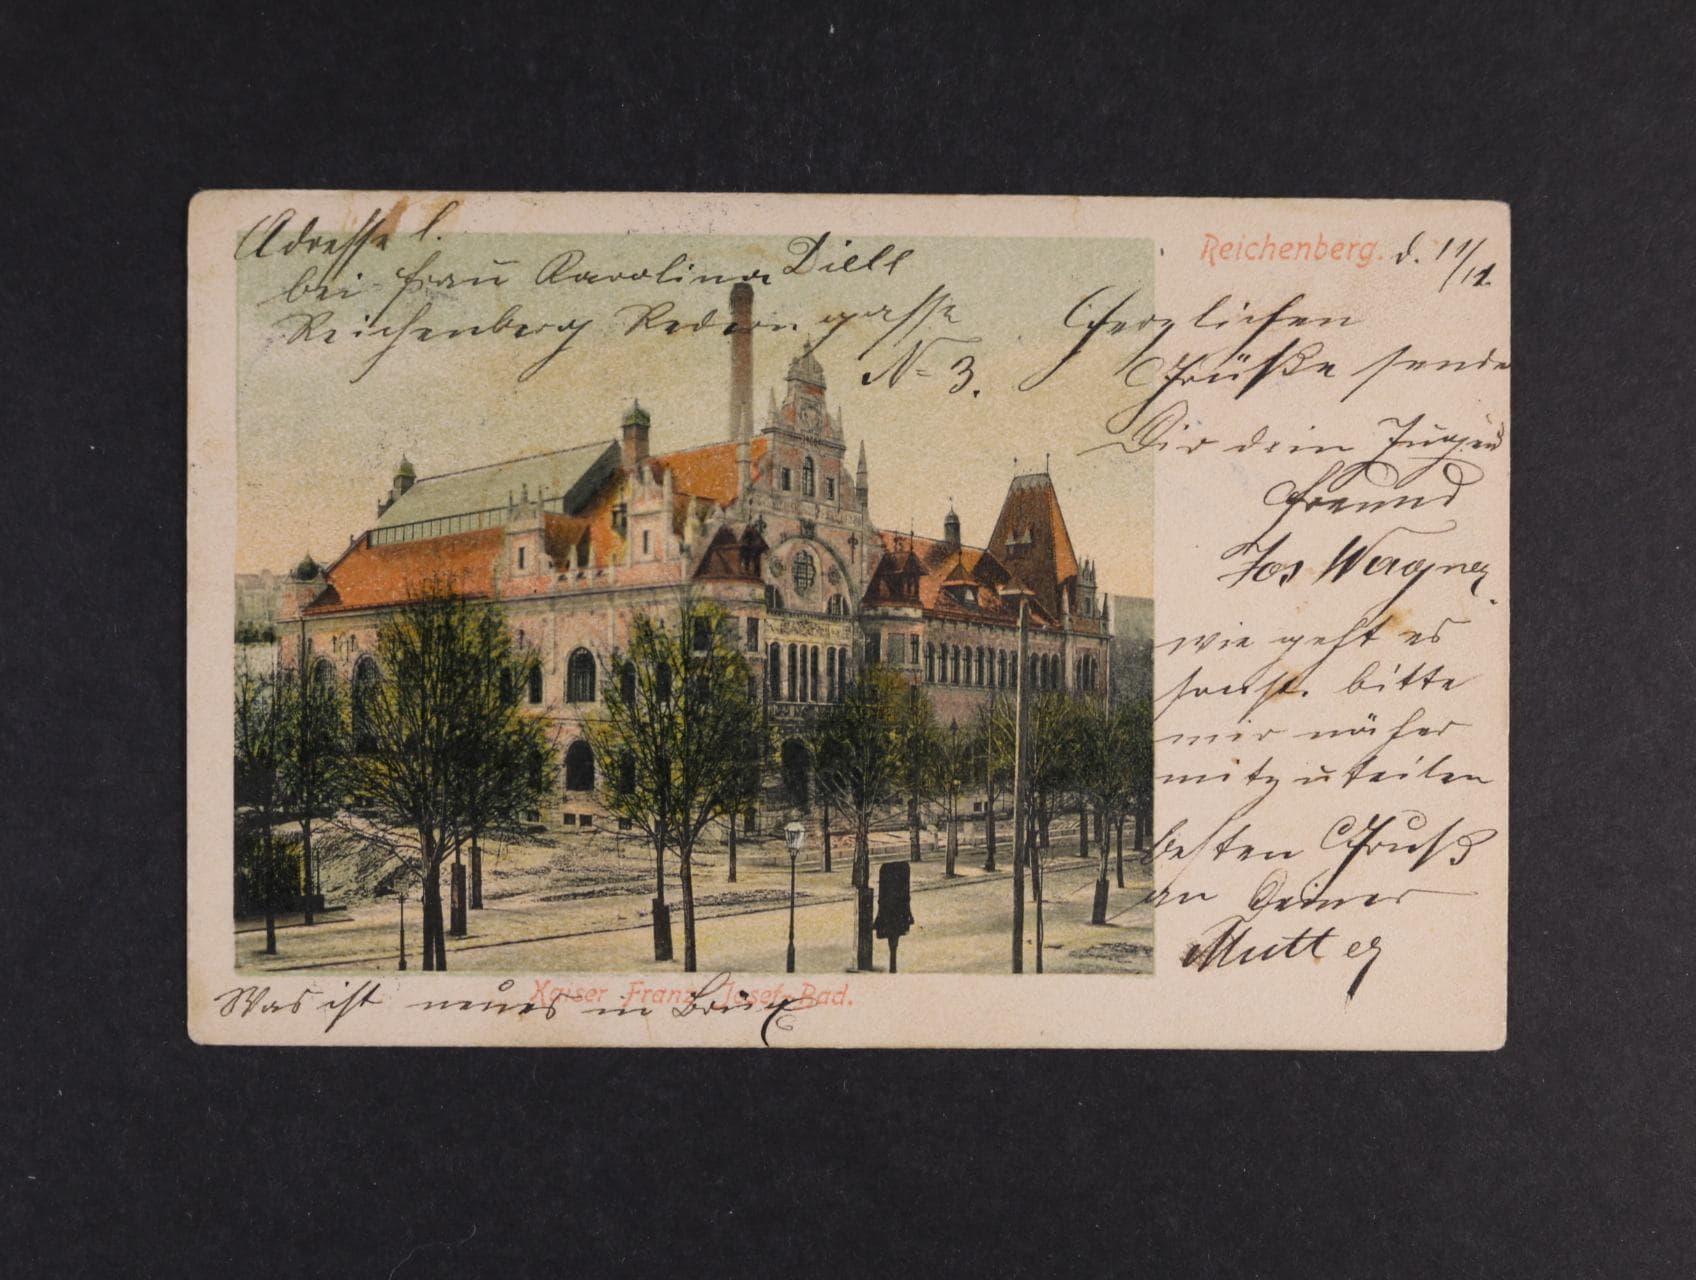 Adresse l.
bei Frau Karolina Diell
Reichenberg Redern gasse
N= 3.
Reichenberg. d. 11/11.
Herzlichen
Grüße sende
Dir dein Jugend
Freund
Jos Wagner.
wie geht es
sonst. bitte
mir näher
mitzuteilen
besten Gruß
an Deiner
Mutter
Kaiser Franz Josef-Bad.
Was ist neues in Brüx